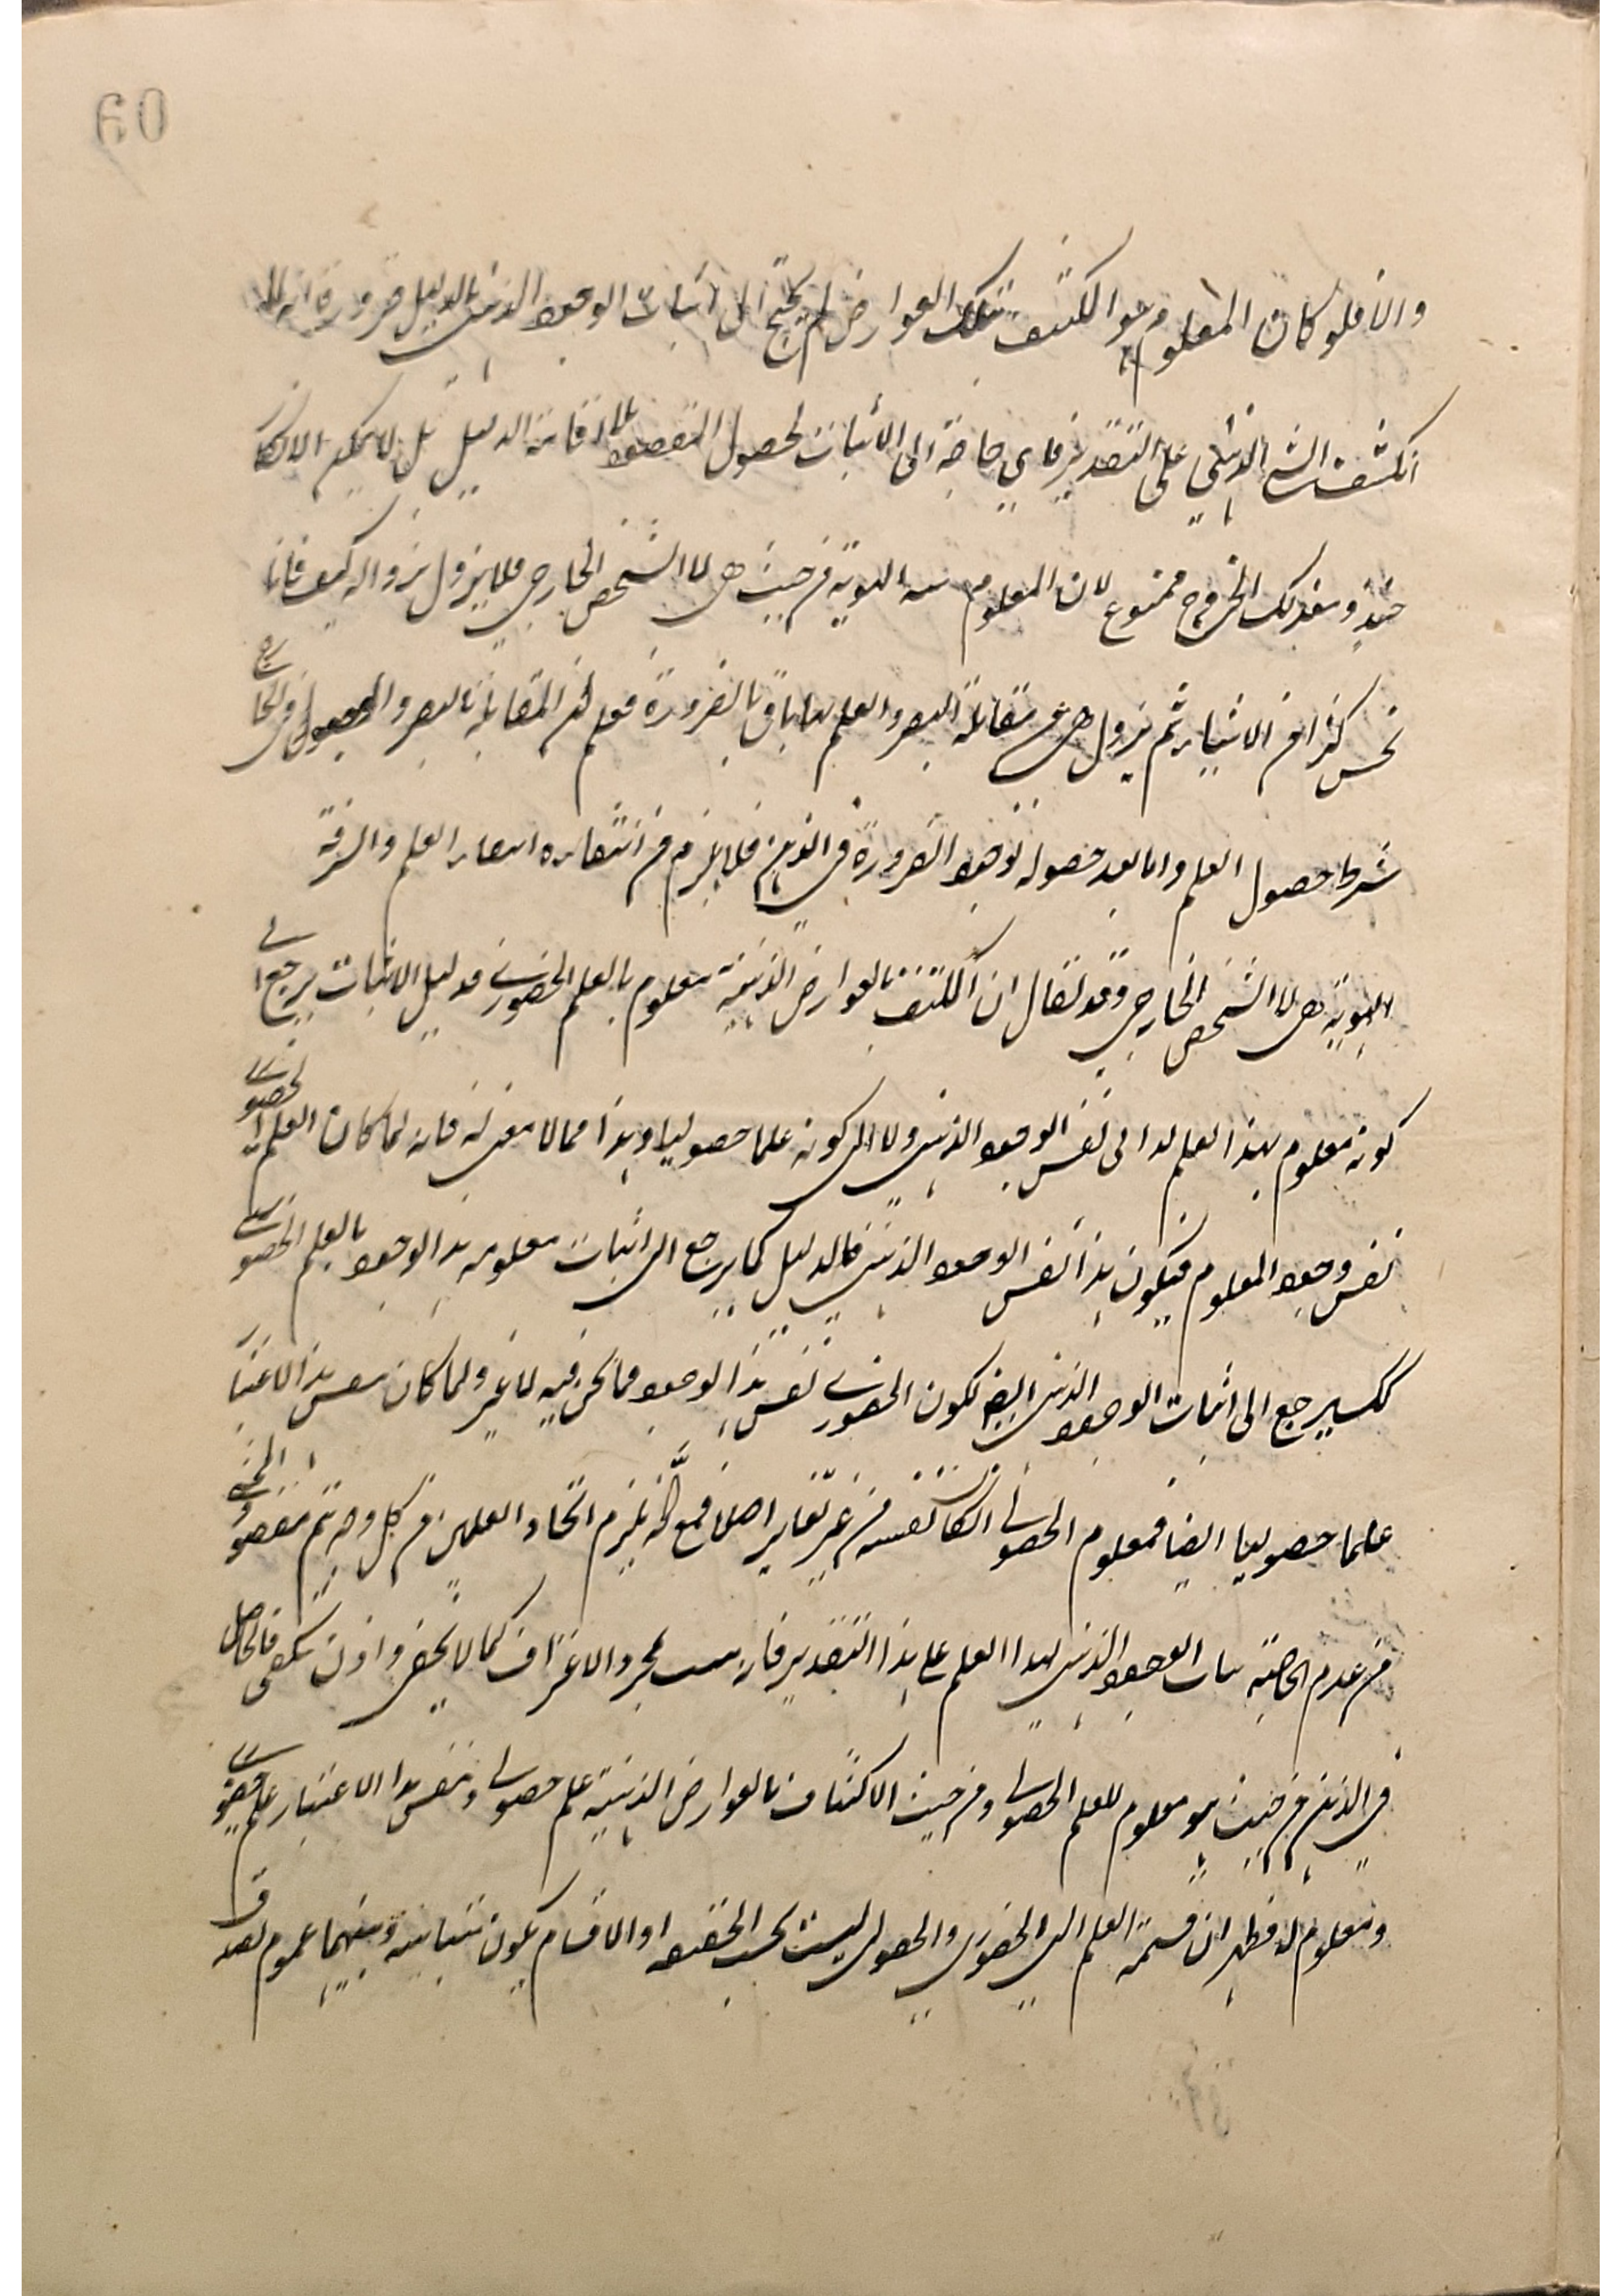 والا فلو كان المعلوم هو المكتنف بتلك العوارض لم يحتج الى اثبات الوجود الذهني بالدليل ضرورة انه
انكشف الشي الذهني على التقدير فاي حاجة الى الاثبات لحصول المقصود بلا اقامة الدليل بل لا يمكن الانكار
حينئذ وبعد ذلك الخروج ممنوع لان المعلوم الهوية من حيث هي لا الشخص الخارجي فلا يزول بزواله كيف فانا
نحس كثرا من الاشياء ثم يزول هي عن مقابلة البصر والعلم بها باق بالضرورة فعلم ان المقابلة بالبصر والوجود في الخارج
شرط حصول العلم واما بعد حصوله فوجود الضرورة في الذهن فلا يلزم من انتفائه انتفاء العلم والسر فيه
الهوية هي لا الشخص الخارجي وقد يقال ان المكتنف بالعوارض الذهنية معلوم بالعلم الحضوري فدليل الاثبات يرجع الى
كونه معلوم بهذا العلم لا الى نفس الوجود الذهني ولا الى كونه علما حصوليا وهذا مما لا معنى له فانه لما كان العلم الحضوري
نفس وجود المعلوم فيكون هذا نفس الوجود الذهني فالدليل كما يرجع الى اثبات معلومية هذا الوجود بالعلم الحضوري
كك يرجع الى اثبات الوجود الذهني ايضا لكون الحضوري نفس هذا الوجود فما نحن فيه لا غير ولما كان نفس هذا الاعتبار
علما حصوليا ايضا فمعلوم الحصولي الكا نفسه من غير تغاير اصلا فمع انه يلزم اتحاد العلمين من كل وجه يتم مقصود المخ
من عدم الحاجة اثبات الوجود الذهني لهذا العلم على هذا التقدير فانه بمجرد الاعتراف كما لا يخفى واذن نكفى فالحاصل
في الذهن من حيث هو معلوم للعلم الحصولي ومن حيث الاكتناف بالعوارض الذهنية علم حصولي ونفس هذا الاعتبار علم حضوري
ومعلوم له فظهر ان قسمة العلم الى الحضوري والحصولي ليست بحسب الحقيقة اذ الاقسام يكون متباينة وبينهما عموم لصدق